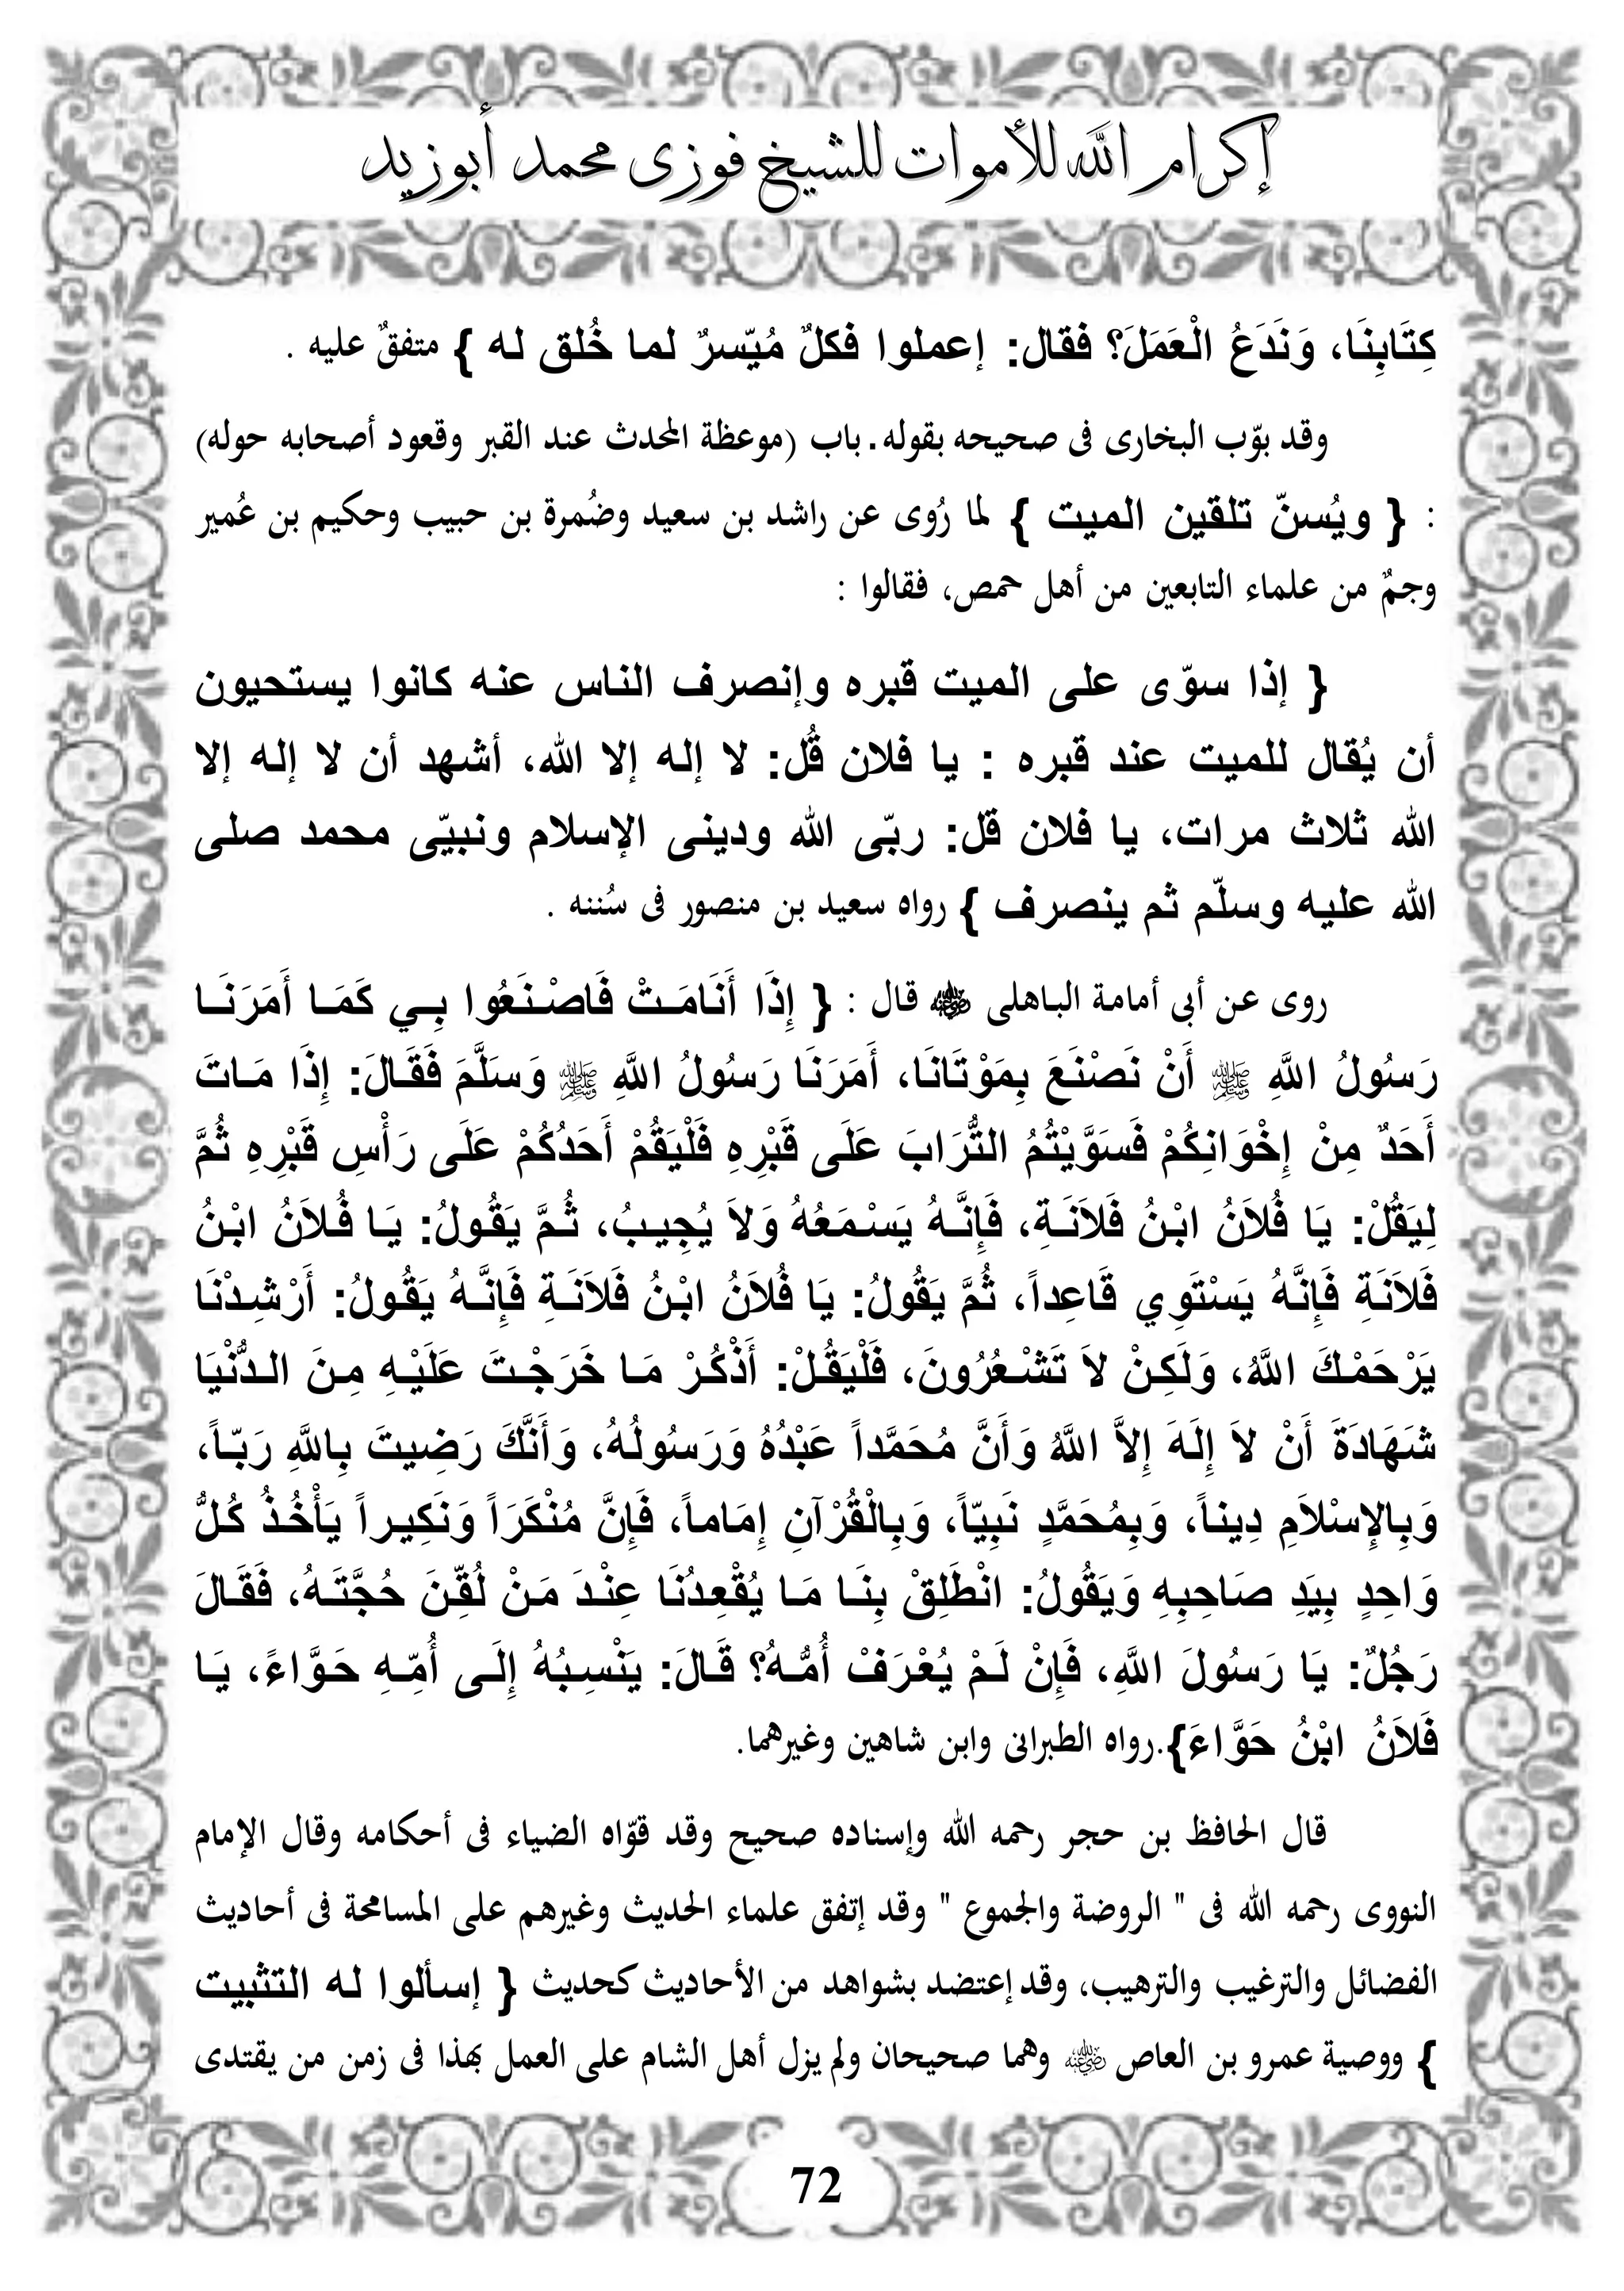 إكرام الله للأموات للشيخ فوزى محمد أبوزيد
كِتَابِنَا، وَنَدَعُ الْعَمَلَ؟ فقال: إعملوا فكلٌ مُيّسرٌ لما خُلق له } متفقٌ عليه .
وقد بوّب البخارى فى صحيحه بقوله. باب (موعظة المحدث عند القبر وقعود أصحابه حوله)
: { ويُسنّ تلقين الميت } لما رُوى عن راشد بن سعيد وضُمرة بن حبيب وحكيم بن عُمير
وجمٌ من علماء التابعين من أهل حمص، فقالوا :
{ إذا سوّى على الميت قبره وإنصرف الناس عنه كانوا يستحيون
أن يُقال للميت عند قبره : يا فلان قُل: لا إله إلا الله، أشهد أن لا إله إلا
الله ثلاث مرات، يا فلان قل: ربّى الله ودينى الإسلام ونبيّى محمد صلى
الله عليه وسلّم ثم ينصرف } رواه سعيد بن منصور فى سُننه .
روى عن أبى أمامة الباهلى ﵁ قال : { إِذَا أَنَامَتْ فَاصْنَعُوا بِي كَمَا أَمَرَنَا
رَسُولُ اللَّهِ ﷺ أَنْ نَصْنَعَ بِمَوْتَانَا، أَمَرَنَا رَسُولُ اللَّهِ ﷺ وَسَلَّمَ فَقَالَ: إِذَا مَاتَ
أَحَدٌ مِنْ إِخْوَانِكُمْ فَسَوَّيْتُمُ التُّرَابَ عَلَى قَبْرِهِ فَلْيَقُمْ أَحَدُكُمْ عَلَى رَأْسِ قَبْرِهِ ثُمَّ
لِيَقُلْ: يَا فُلَانُ ابْنُ فَلَانَةِ، فَإِنَّهُ يَسْمَعُهُ وَلَا يُجِيبُ، ثُمَّ يَقُولُ: يَا فُلَانُ ابْنُ
فَلَانَةِ فَإِنَّهُ يَسْتَوِي قَاعِداً، ثُمَّ يَقُولُ: يَا فُلَانُ ابْنُ فَلَانَةِ فَإِنَّهُ يَقُولُ: أَرْشِدْنَا
يَرْحَمْكَ اللَّهُ، وَلَكِنْ لَا تَشْعُرُونَ، فَلْيَقُلْ: أَذْكُرْ مَا خَرَجْتَ عَلَيْهِ مِنَ الدُّنْيَا
شَهَادَةَ أَنْ لَا إِلَهَ إِلَّا اللَّهُ وَأَنَّ مُحَمَّداً عَبْدُهُ وَرَسُولُهُ، وَأَنَّكَ رَضِيتَ بِاللَّهِ رَبّاً،
وَبِالإِسْلَامِ دِيناً، وَبِمُحَمَّدٍ نَبِيّاً، وَبِالْقُرْآنِ إِمَاماً، فَإِنَّ مُنْكَرَاً وَنَكِيراً يَأْخُذُ كُلُّ
وَاحِدٍ بِيَدِ صَاحِبِهِ وَيَقُولُ: انْطَلِقْ بِنَا مَا يُقْعِدُنَا عِنْدَ مَنْ لُقِّنَ حُجَّتَهُ، فَقَالَ
رَجُلٌ: يَا رَسُولَ اللَّهِ، فَإِنْ لَمْ يُعْرَفْ أُمُّهُ؟ قَالَ: يَنْسِبُهُ إِلَى أُمِّهِ حَوَّاءً، يَا
فَلَانُ ابْنُ حَوَّاءَ}.رواه الطبرانى وابن شاهين وغيرهما.
قال الحافظ بن حجر رحمه الله وإسناده صحيح وقد قوّاه الضياء فى أحكامه وقال الإمام
النووى رحمه الله فى " الروضة والمجموع " وقد إتفق علماء الحديث وغيرهم على المسامحة فى أحاديث
الفضائل والترغيب والترهيب، وقد إعتضد بشواهد من الأحاديث كحديث { إسألوا له التثبيت
} ووصية عمرو بن العاص ﵁ وهما صحيحان ولم يزل أهل الشام على العمل بهذا فى زمن من يقتدى
72